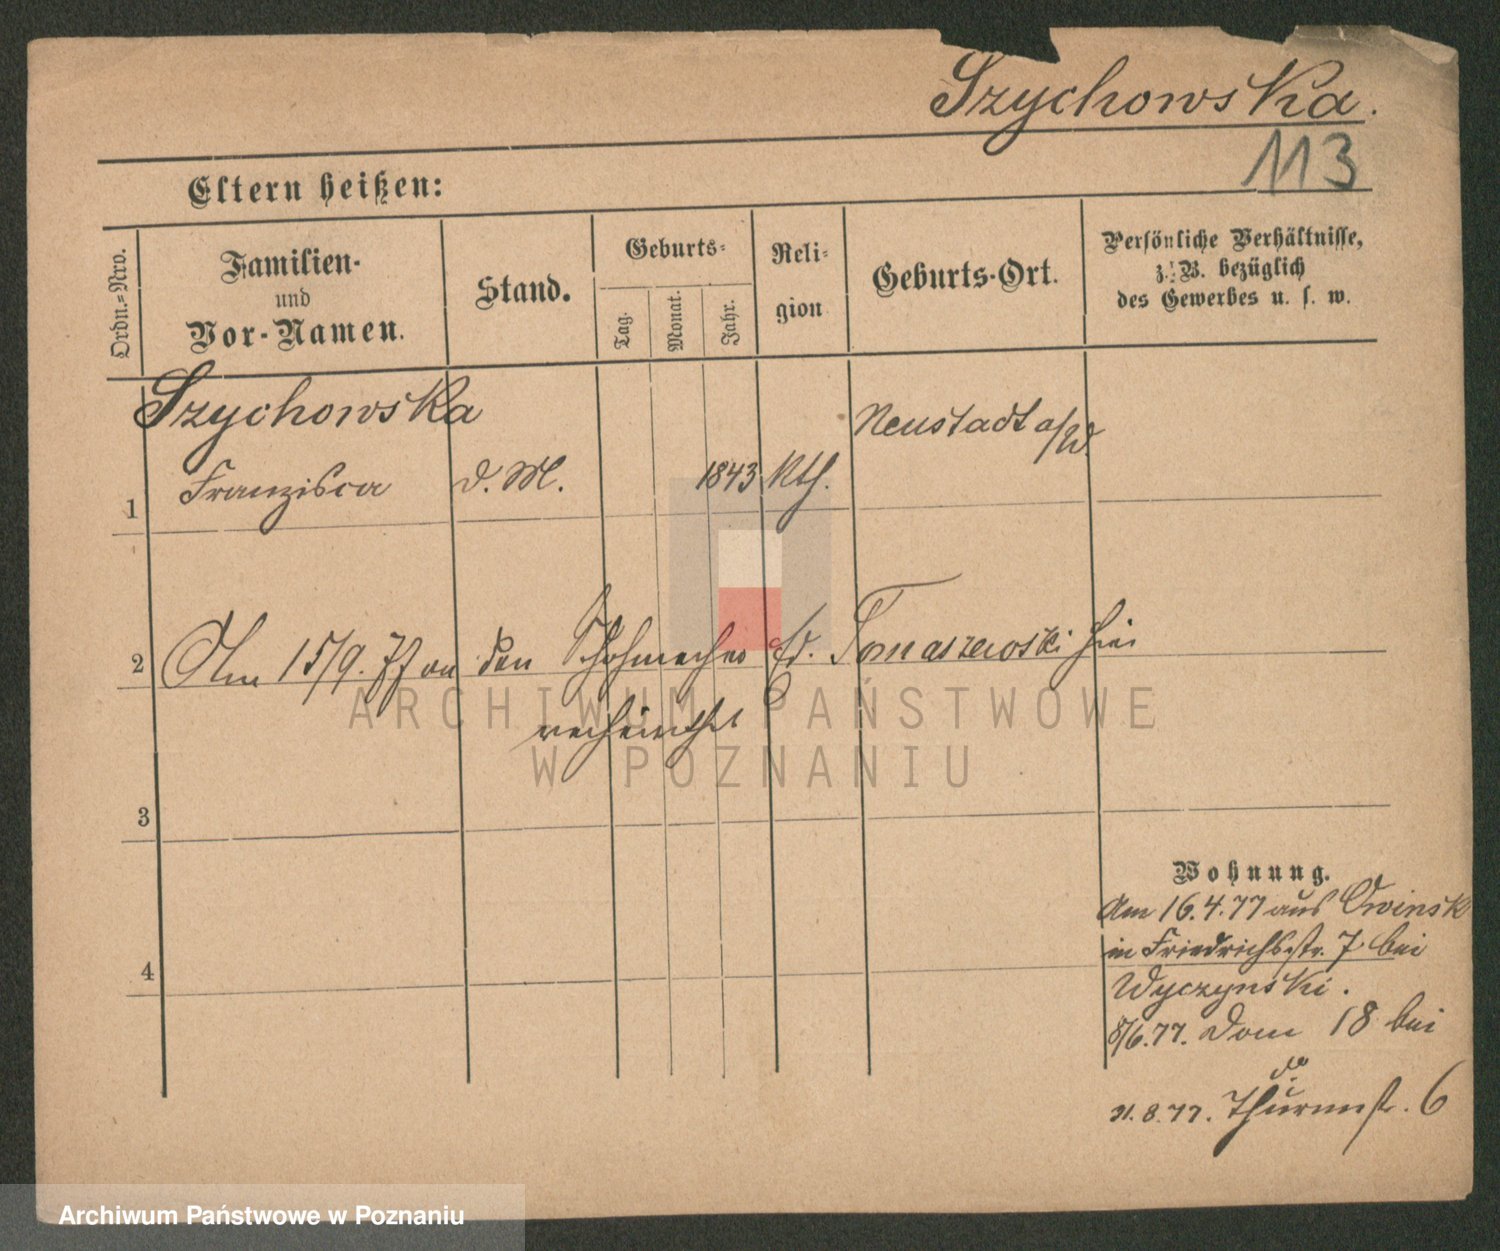 Szychowska.
113
Eltern heißen:
Ordn.=Nro.
Familien-
und
Vor-Namen.
Stand.
Geburts=
Tag.
Monat.
Jahr.
Reli=
gion
Geburts-Ort.
Persönliche Verhältnisse,
z. B. bezüglich
des Gewerbes u. s. w.
Szychowska
Neustadt a/W.
1 Franzisca d. M. 1843 Kth.
2 Am 15/9. 77 an den Schuhmacher Ed. Tomaszewski hier
verheirathet
3
4
Wohnung.
Am 16.4.77 aus Owinsk
in Friedrichsstr. 7 bei
Wyczynski.
8/6.77. Dom 18 bei
do
31.8.77. Thurmstr. 6
ARCHIWUM PAŃSTWOWE
W POZNANIU
Archiwum Państwowe w Poznaniu